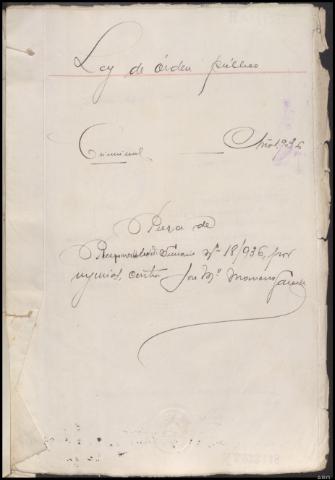 Ley de órden público
Criminal — Año 1936
Pieza de
Responsabilidad Nº 18/936, por
injurias, contra José Mª Moreno